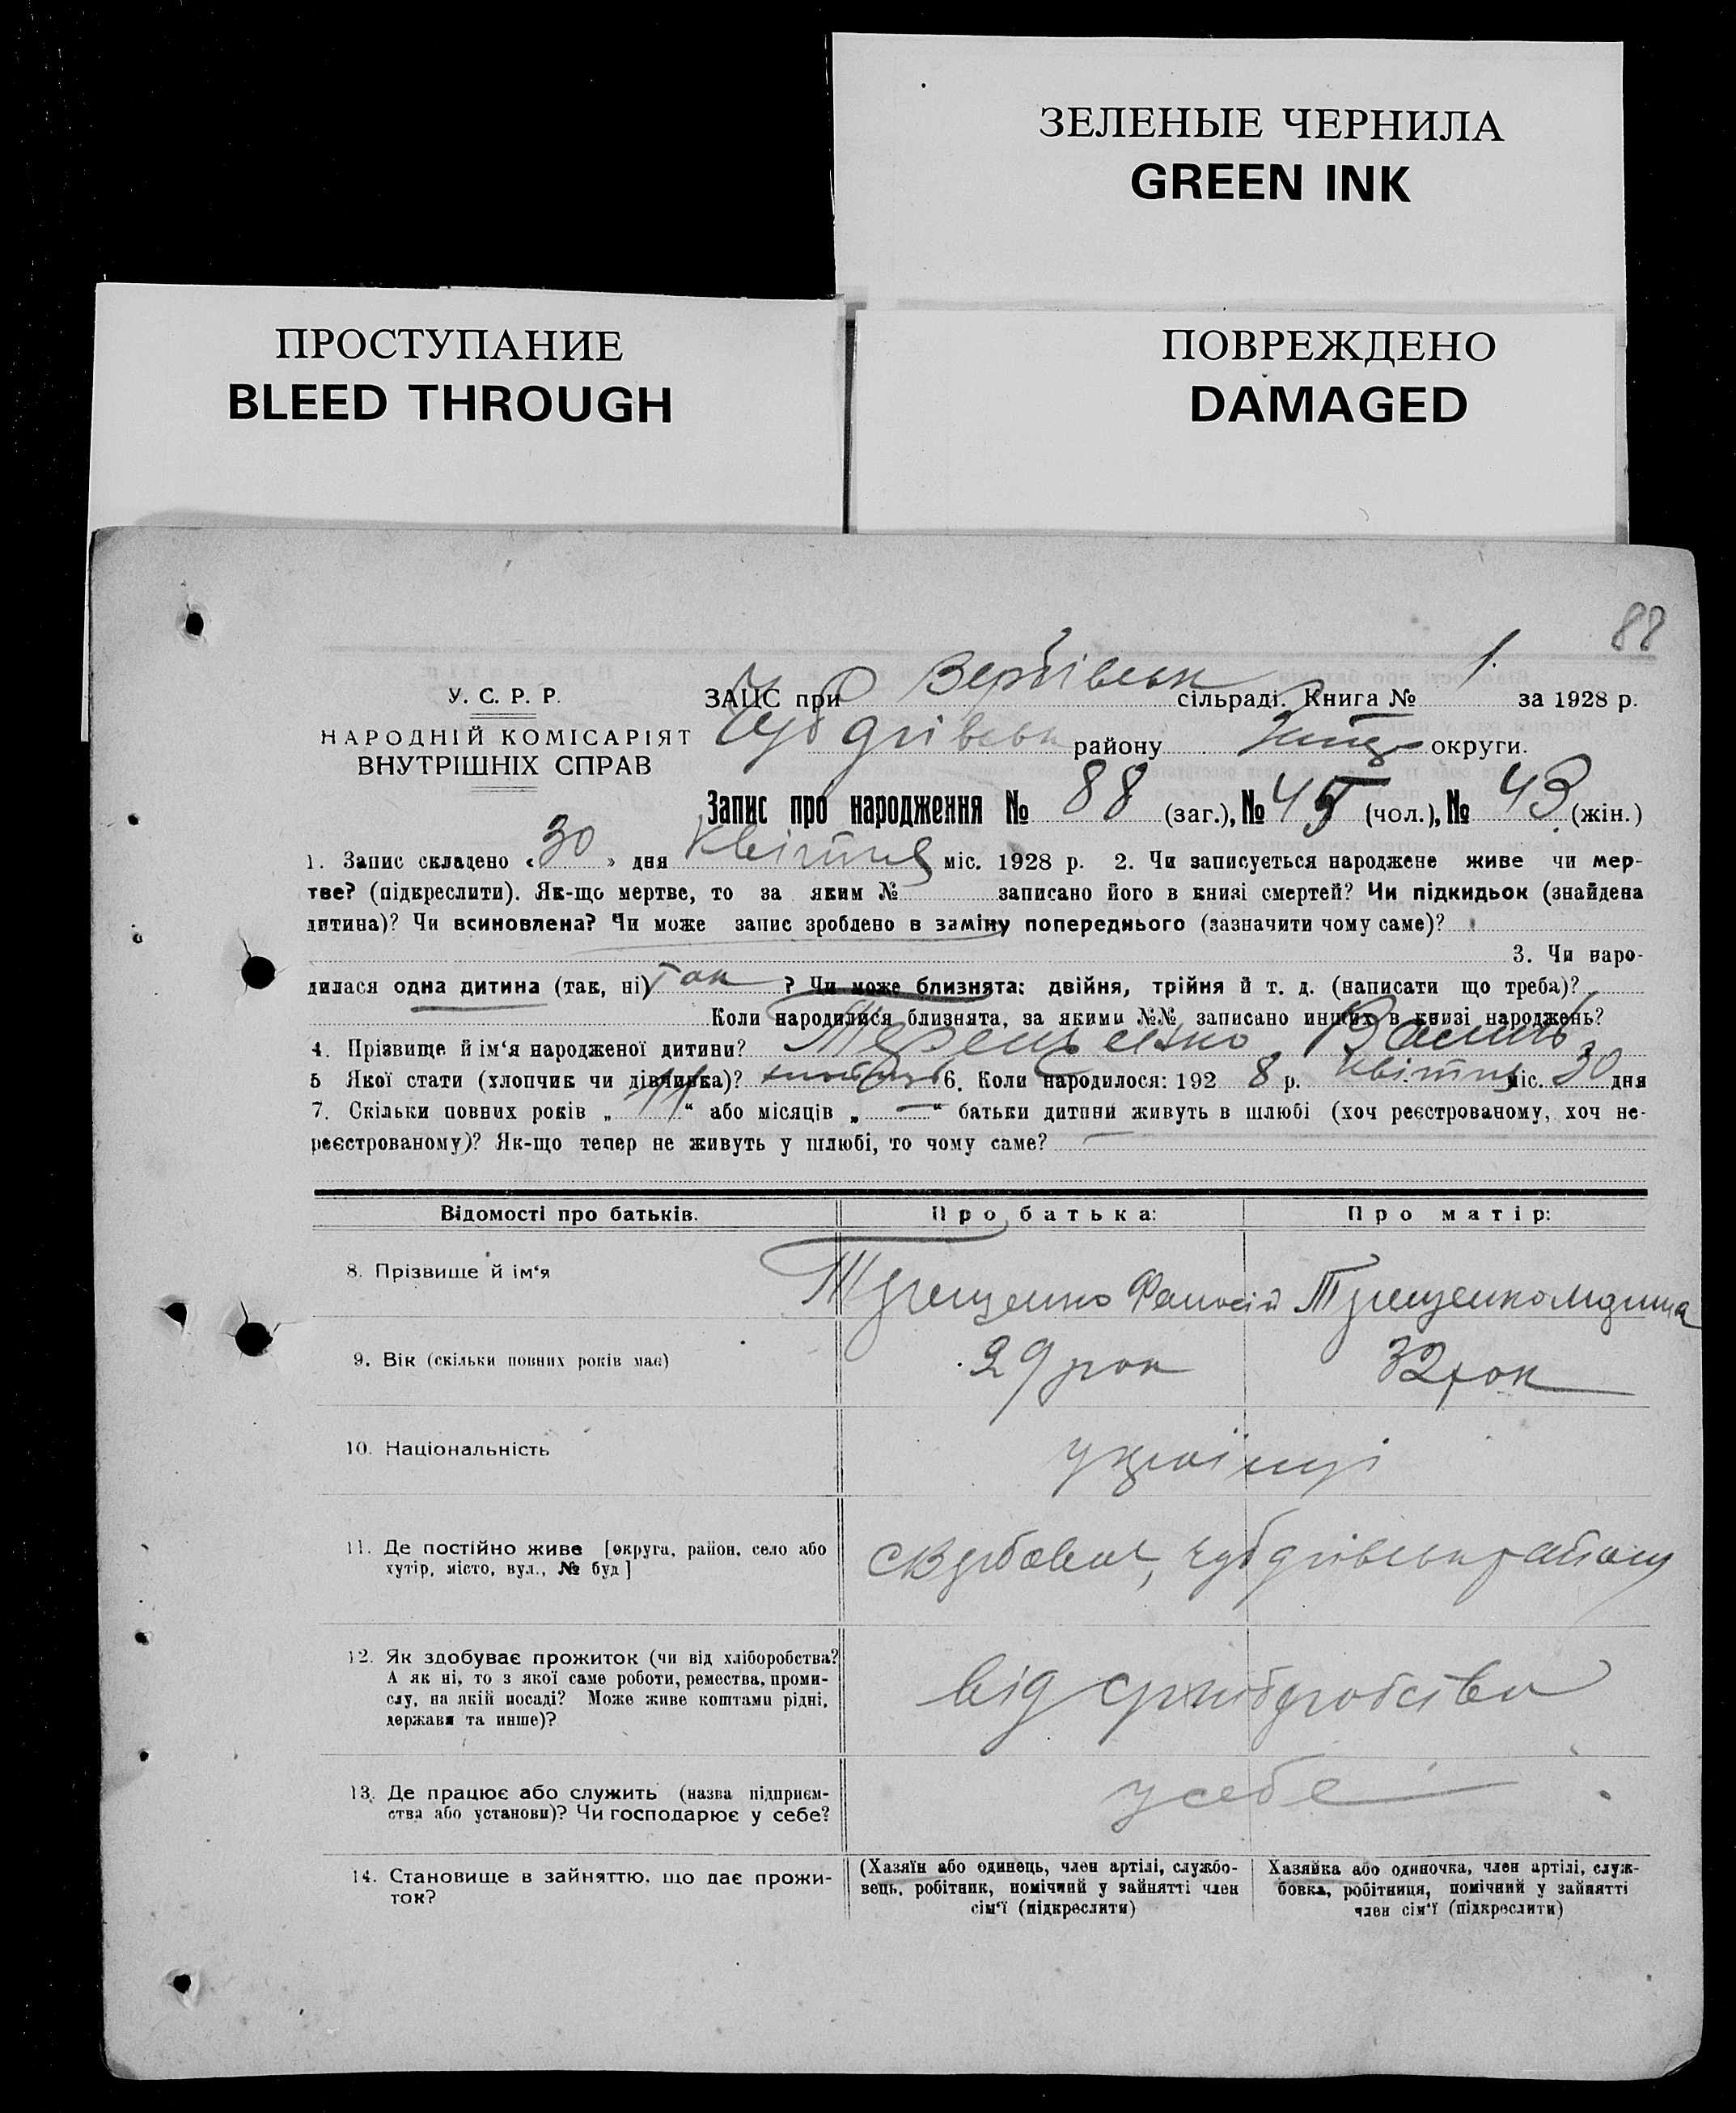 ЗЕЛЕНЫЕ ЧЕРНИЛА
GREEN INK
ПРОСТУПАНИЕ
BLEED THROUGH
ПОВРЕЖДЕНО
DAMAGED
88
У. С. Р. Р.
НАРОДНІЙ КОМІСАРІЯТ
ВНУТРІШНІХ СПРАВ
ЗАЦС при Вербівськ сільраді. Книга № 1. за 1928 р.
району округи.
Запис про народження № 88 (заг.), № 45 (чол.), № 43 (жін.)
1. Запис складено « 30 » дня Квітня міс. 1928 р. 2. Чи записується народжене живе чи мер-
тве? (підкреслити). Як-що мертве, то за яким № записано його в книзі смертей? Чи підкидьок (знайдена
дитина)? Чи всиновлена? Чи може запис зроблено в заміну попереднього (зазначити чому саме)?
3. Чи наро-
дилася одна дитина (так, ні) так ? Чи може близнята: двійня, трійня й т. д. (написати що треба)?
Коли народилися близнята, за якими №№ записано инших в книзі народжень?
4. Прізвище й ім'я народженої дитини? Терещенко Василь
5 Якої стати (хлопчик чи дівчинка)? 6. Коли народилося: 192 8 р. квітня міс. 30 дня
7. Скільки повних років „ 11 “ або місяців „ — “ батьки дитини живуть в шлюбі (хоч реєстрованому, хоч не-
реєстрованому)? Як-що тепер не живуть у шлюбі, то чому саме? —
Відомості про батьків. Про батька: Про матір:
8. Прізвище й ім'я Терещенко Терещенко
9. Вік (скільки повних років має) 29 рок 32 рок
10. Національність українці
11. Де постійно живе [округа, район, село або
хутір, місто, вул., № буд]
12. Як здобуває прожиток (чи від хліборобства?
А як ні, то з якої саме роботи, ремества, проми-
слу, на якій посаді? Може живе коштами рідні,
держави та инше)?
від
13. Де працює або служить (назва підприєм-
ства або установи)? Чи господарює у себе?
у себе —
14. Становище в зайняттю, що дає прожи-
ток?
(Хазяїн або одинець, член артілі, службо-
вець, робітник, помічний у зайнятті член
сім'ї (підкреслити)
Хазяйка або одиночка, член артілі, служ-
бовка, робітниця, помічний у зайнятті
член сім'ї (підкреслити)